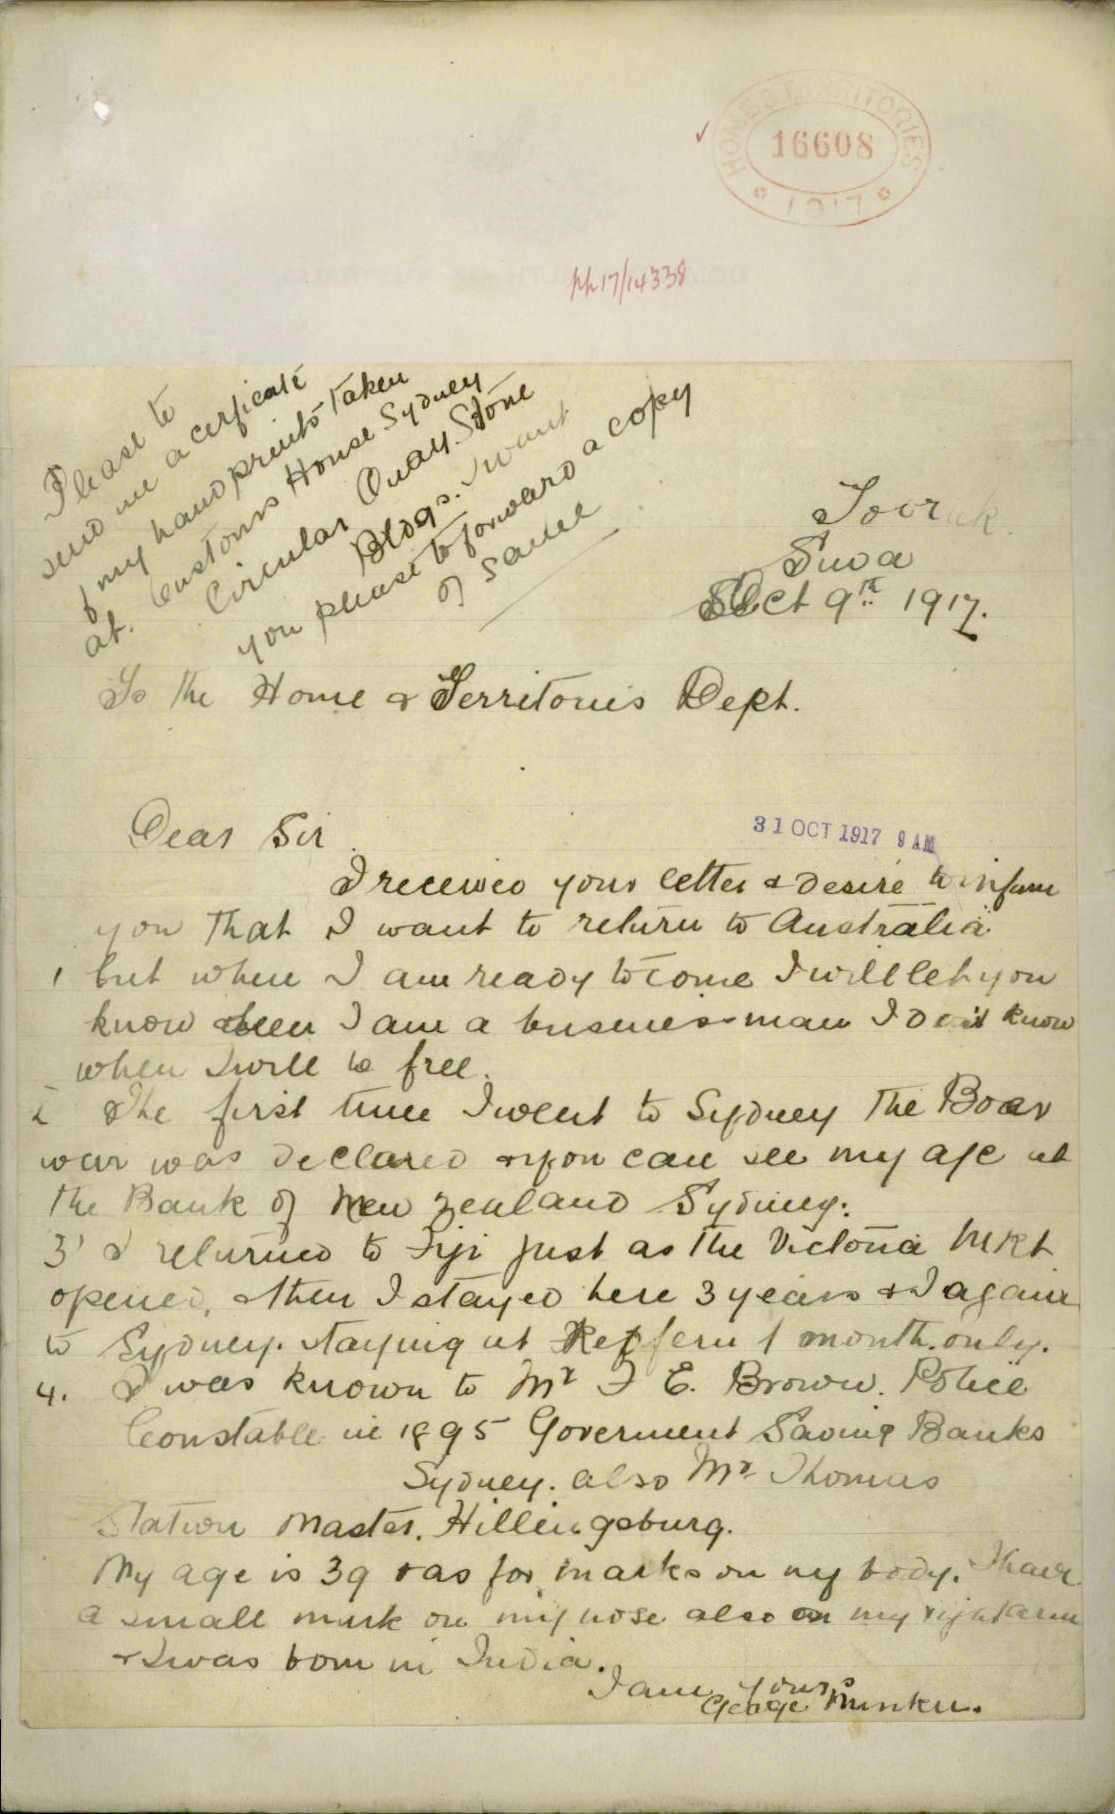 HOME & TERRITORIES
16608
1917
pp 17/14338
Please to
send me a cerficate
of my hand prints taken
at. Customs House Sydney
Circular Quay. Stone
Bldgs. I want
you please to forward a copy
of same
Toorak.
Suva
Oct 9th 1917.
To the Home & Territories Dept.
Dear Sir
31 OCT 1917 9 AM
I received your letter & desire to inform
you that I want to return to Australia
1 but when I am ready to come I will let you
know when I am a business man I dont know
when I will be free.
2 The first time I went to Sydney the Boer
war was declared & you can see my age at
the Bank of New Zealand Sydney.
3 I returned to Fiji just as the Victoria Mkt
opened, & then I stayed here 3 years & I again
to Sydney. staying at Redfern 1 month. only.
4. I was known to Mr F E. Brown. Police
Constable in 1895 Goverment Saving Banks
Sydney. also Mr Thomas
Station Master. Hillingsburg.
My age is 39 & as for marks on my body. I have
a small mark on my nose also on my right arm
& I was born in India.
I am yours
George Munku.